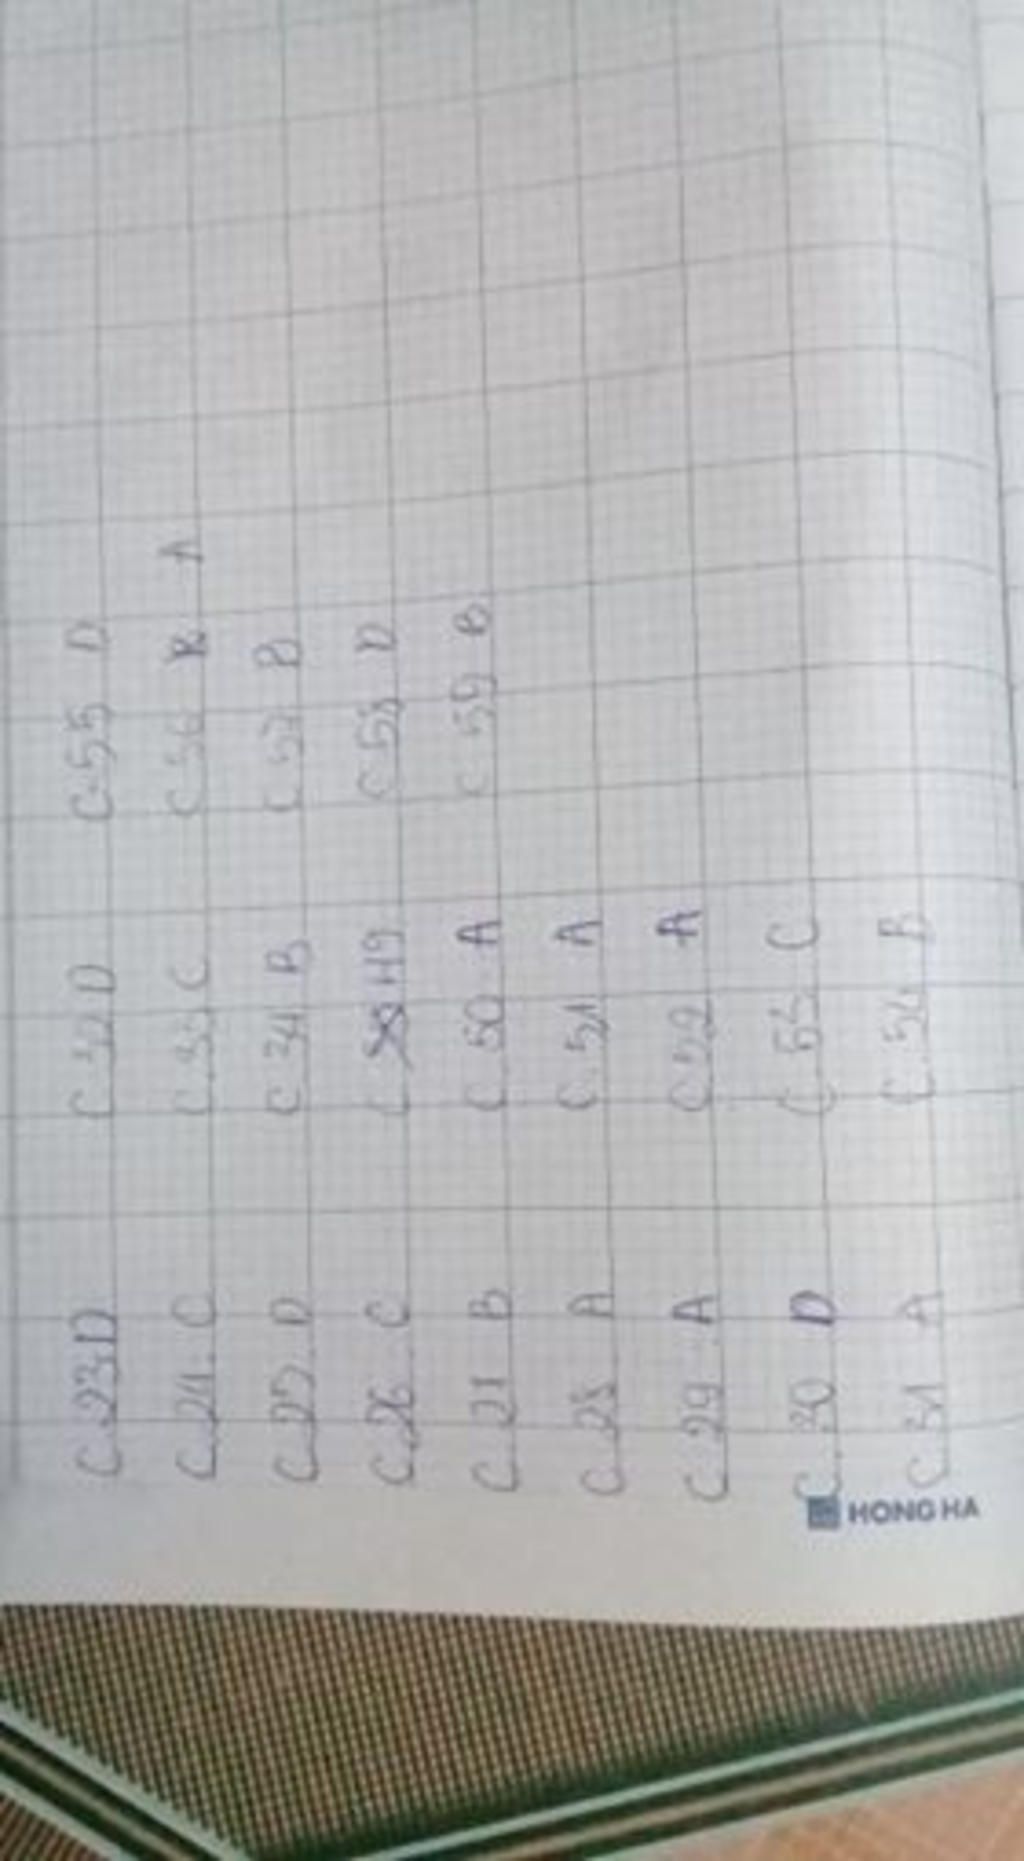 C.23.D
C.24.C
C.25.D
C.26.C
C.27 B
C.28 A
C.29 A
C.30 D
C.31 A
C.32 D
C.33 C
C.34 B
C 49
C.50 A
C.51 A
C.52 A
C.53 C
C.54 B
C.55 D
C.56 A
C.57 B
C.58 D
C.59 B
HONG HA